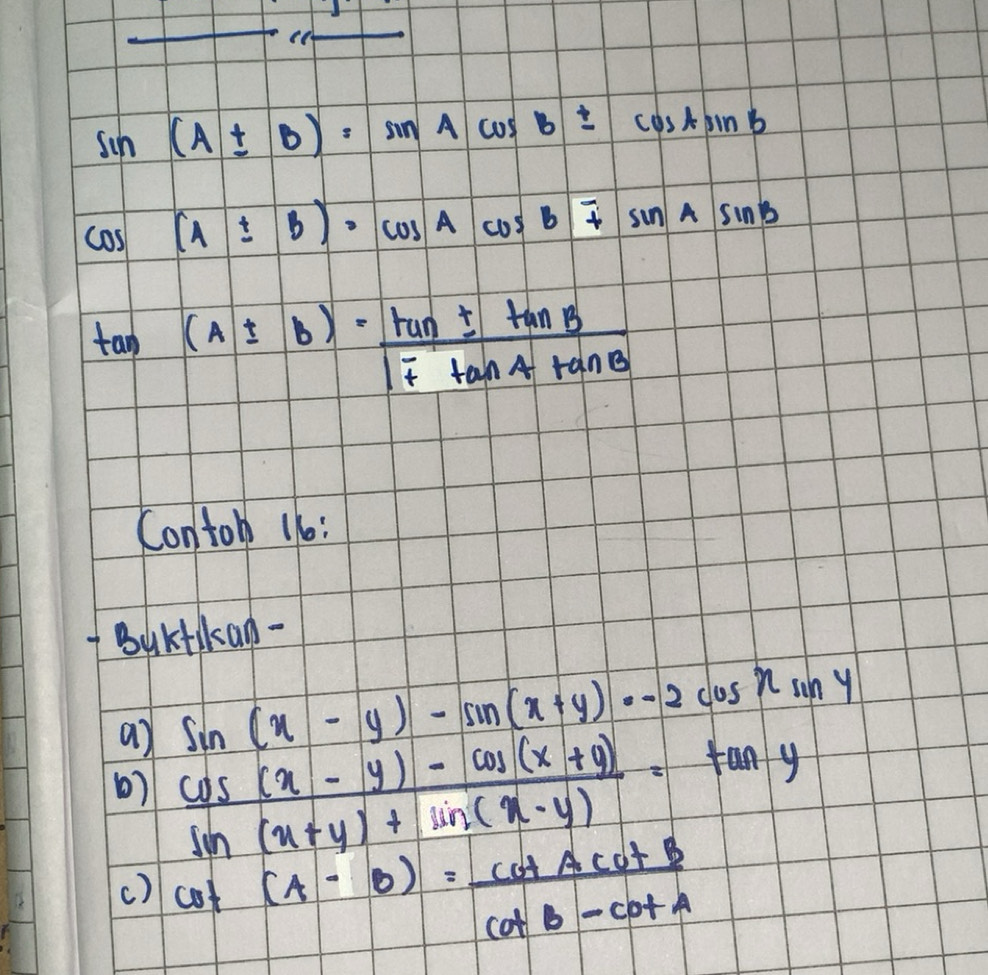 sin (A ± B) = sin A cos B ± cos A sin B
cos (A ± B) = cos A cos B ∓ sin A sin B
tan (A ± B) = tan ± tan B
1 ∓ tan A tan B
Contoh 16:
- Buktikan -
a) Sin (x - y) - sin (x + y) = -2 cos x sin y
b) cos (x - y) - cos (x + y) = tan y
sin (x + y) + sin (x - y)
c) cot (A - B) = cot A cot B
cot B - cot A